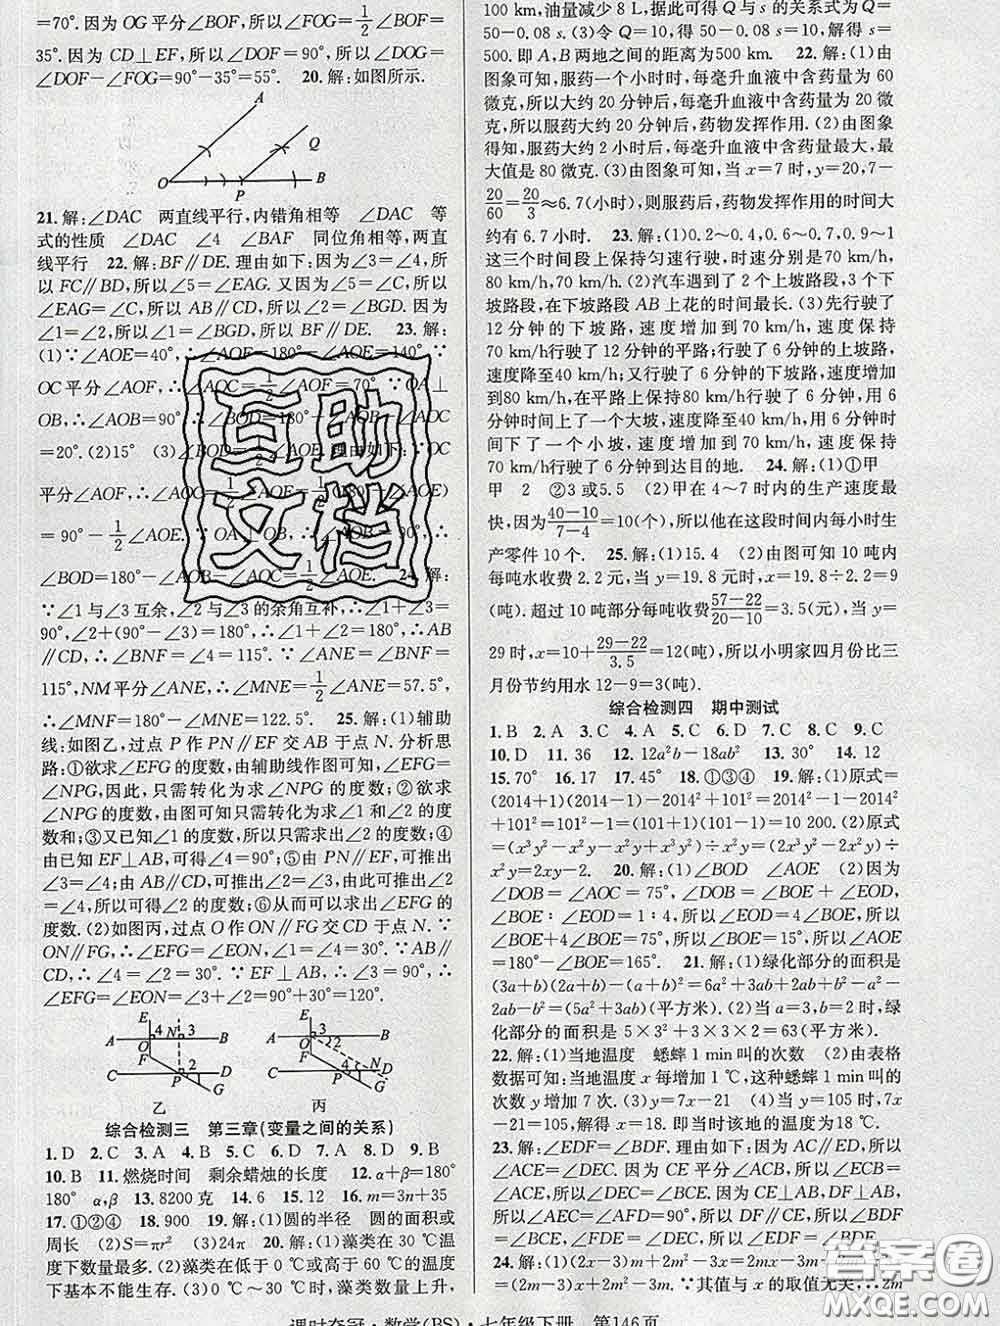 70°. 因为 OG 平分∠BOF, 所以∠FOG=1/2∠BOF=
35°. 因为 CD⊥EF, 所以∠DOF=90°, 所以∠DOG=
∠DOF-∠FOG=90°-35°=55°. 20. 解:如图所示.
A
Q
O P B
21. 解:∠DAC 两直线平行,内错角相等 ∠DAC 等
式的性质 ∠DAC ∠4 ∠BAF 同位角相等,两直
线平行 22. 解:BF∥DE. 理由如下:因为∠3=∠4,所
以 FC∥BD,所以∠5=∠EAG. 又因为∠5=∠C,所以
∠EAG=∠C,所以 AB∥CD,所以∠2=∠BGD. 因为
∠1=∠2,所以∠1=∠BGD,所以 BF∥DE. 23. 解:
(1)∵∠AOE=40°,∴∠AOF=180°-∠AOE=140°. ∵
OC平分∠AOF,∴∠AOC=1/2∠AOF=70°. ∵OA⊥
OB,∴∠AOB=90°,∴∠BOD=180°-
=20°. (2)15° (3)∠BOD=1/2∠AOE. 理由如下:∵OC
平分∠AOF,∴∠AOC=1/2∠AOF=
=90°-1/2∠AOE. ∵OA⊥OB,∴∠AOB=90°,
∴∠BOD=180°-∠AOB-∠AOC=
∵∠1与∠3互余,∠2与∠3的余角互补,∴∠1+∠3=
90°,∠2+(90°-∠3)=180°,∴∠1+∠2=180°,∴AB
∥CD,∴∠BNF=∠4=115°. ∵∠ANE=∠BNF=
115°,NM平分∠ANE,∴∠MNE=1/2∠ANE=57.5°,
∴∠MNF=180°-∠MNE=122.5°. 25. 解:(1)辅助
线:如图乙,过点 P 作 PN∥EF 交 AB 于点 N. 分析思
路:①欲求∠EFG 的度数,由辅助线作图可知,∠EFG=
∠NPG,因此,只需转化为求∠NPG 的度数;②欲求
∠NPG的度数,由图可知只需转化为求∠1和∠2的度
数和;③又已知∠1的度数,所以只需求出∠2的度数;④
由已知 EF⊥AB,可得∠4=90°;⑤由 PN∥EF,可推出
∠3=∠4;由 AB∥CD,可推出∠2=∠3,由此可推出
∠2=∠3=∠4=90°;⑥从而可以求出∠EFG 的
度数. (2)如图丙,过点 O 作 ON∥FG 交 CD 于点 N. ∵
ON∥FG,∴∠EFG=∠EON,∠1=∠ONC=30°. ∵AB∥
CD,∴∠3=∠ONC=30°. ∵EF⊥AB,∴∠4=90°,∴
∠EFG=∠EON=∠3+∠4=90°+30°=120°.
E 4 N 3 A B O F 2 C P D G 乙
E 4 3 A B O F N 2 C P D G 丙
综合检测三 第三章(变量之间的关系)
1. D 2. C 3. A 4. B 5. C 6. D 7. C 8. B 9. C
10. B 11. 燃烧时间 剩余蜡烛的长度 12. α+β=180°
180° α,β 13. 8200克 14. 6 15. 12 16. m=3n+35
17. ①②④ 18. 900 19. 解:(1)圆的半径 圆的面积或
周长 (2)S=πr² (3)24π 20. 解:(1)藻类在 30 ℃温
度下数量最多. (2)藻类在低于 0 ℃或高于 60 ℃的温度
下基本不能生存. (3)0 ℃～30 ℃时,藻类数量上升,
100 km,油量减少 8 L,据此可得 Q 与 s 的关系式为 Q=
50-0.08 s. (3)令 Q=10,得 50-0.08 s=10,解得 s=
500. 即 A,B 两地之间的距离为500 km. 22. 解:(1)由
图象可知,服药一个小时时,每毫升血液中含药量为 60
微克,所以大约 20 分钟后,每毫升血液中含药量为 20
微克,所以服药大约 20 分钟后,药物发挥作用. (2)由图象
得知,服药大约 2 小时后,每毫升血液中含药量最大,最
大值是 80 微克. (3)由图象可知,当 x=7 时,y=20,7-
20/60=20/3≈6.7(小时),则服药后,药物发挥作用的时间大
约有 6.7 小时. 23. 解:(1)0.2～0.4,0.6～0.7,0.9～1
这三个时间段上保持匀速行驶,时速分别是70 km/h,
80 km/h,70 km/h. (2)汽车遇到了 2 个上坡路段,3 个下
坡路段,在下坡路段 AB 上花的时间最长. (3)先行驶了
12 分钟的下坡路,速度增加到70 km/h,速度保持
70 km/h行驶了 12 分钟的平路;又行驶了 6 分钟的上坡路,
速度降至40 km/h;又行驶了 6 分钟,速度增加到
80 km/h,在平路上保持 80 km/h 行驶了 6 分钟,用 6
分钟时间上了一个大坡,速度降至40 km/h,用 6 分钟
时间下了一个小坡,速度增加到70 km/h,保持
70 km/h的速度行驶 6 分钟到达目的地. 24. 解:(1)①甲
甲 2 ②3 或5.5 (2)甲在 4～7 时内的生产速度最
快,因为(40-10)/(7-4)=10(个),所以他在这段时间内每小时生
产零件 10 个. 25. 解:(1)15.4 (2)由图可知 10 吨内
每吨水收费 2.2 元,当 y=19.8 元时,x=19.8÷2.2=9
(吨). 超过 10 吨部分每吨收费(57-22)/(20-10)=3.5(元),当 y=
29 时,x=10+(29-22)/3.5=12(吨),所以小明家四月份比三
月份节约用水 12-9=3(吨).
综合检测四 期中测试
1. B 2. A 3. C 4. C 5. C 6. D 7. C 8. C 9. C
10. D 11. 36 12. 12a²b-18ab² 13. 30° 14. 12
15. 70° 16. 17 17. 45° 18. ①③④ 19. 解:(1)原式=
(2014+1)(2014-1)-2014²+101²=2014²-1-2014²
+101²=101²-1=(101+1)(101-1)=10 200. (2)原式
=(x³y²-x²y-x²y+x³y²)÷x²y=(2x³y²-2x²y)÷
x²y=2xy-2. 20. 解:(1)∠BOD ∠AOE (2)因为
∠DOB=∠AOC=75°,∠DOB=∠BOE+∠EOD,
∠BOE:∠EOD=1:4,所以∠EOD=4∠BOE,所以
∠BOE+4∠BOE=75°,所以∠BOE=15°,所以∠AOE
=180°-∠BOE=165°. 21. 解:(1)绿化部分的面积是
(3a+b)(2a+b)-(a+b)²=6a²+3ab+2ab+b²-a²-
2ab-b²=(5a²+3ab)(平方米). (2)当 a=3,b=2 时,绿
化部分的面积是 5×3²+3×3×2=63(平方米).
22. 解:(1)当地温度 蟋蟀 1 min叫的次数 (2)由表格
数据可知:当地温度 x 每增加 1 ℃,这种蟋蟀 1 min 叫
的次数 y 增加 7 次. (3)由上可得,当 y=105 时,7x
-21=105,解得 x=18. 即当时该地的温度为 18 ℃.
23. 解:∠EDF=∠BDF. 理由如下:因为 AC∥ED,所以
∠ACE=∠DEC. 因为 CE 平分∠ACB,所以∠ECB=
∠ACE,所以∠DEC=∠BCE. 因为 CE⊥AB,DF⊥AB,
所以∠AEC=∠AFD=90°,所以 DF∥CE,所以∠BDF=
∠BCE,∠FDE=∠DEC,所以∠EDF=∠BDF.
=(2m-3)x+2m²-3m. ∵其值与 x 的取值无关,∴2m
课时夺冠·数学(BS)·七年级下册 第146页
互助
文档
答案圈
MXQE.COM